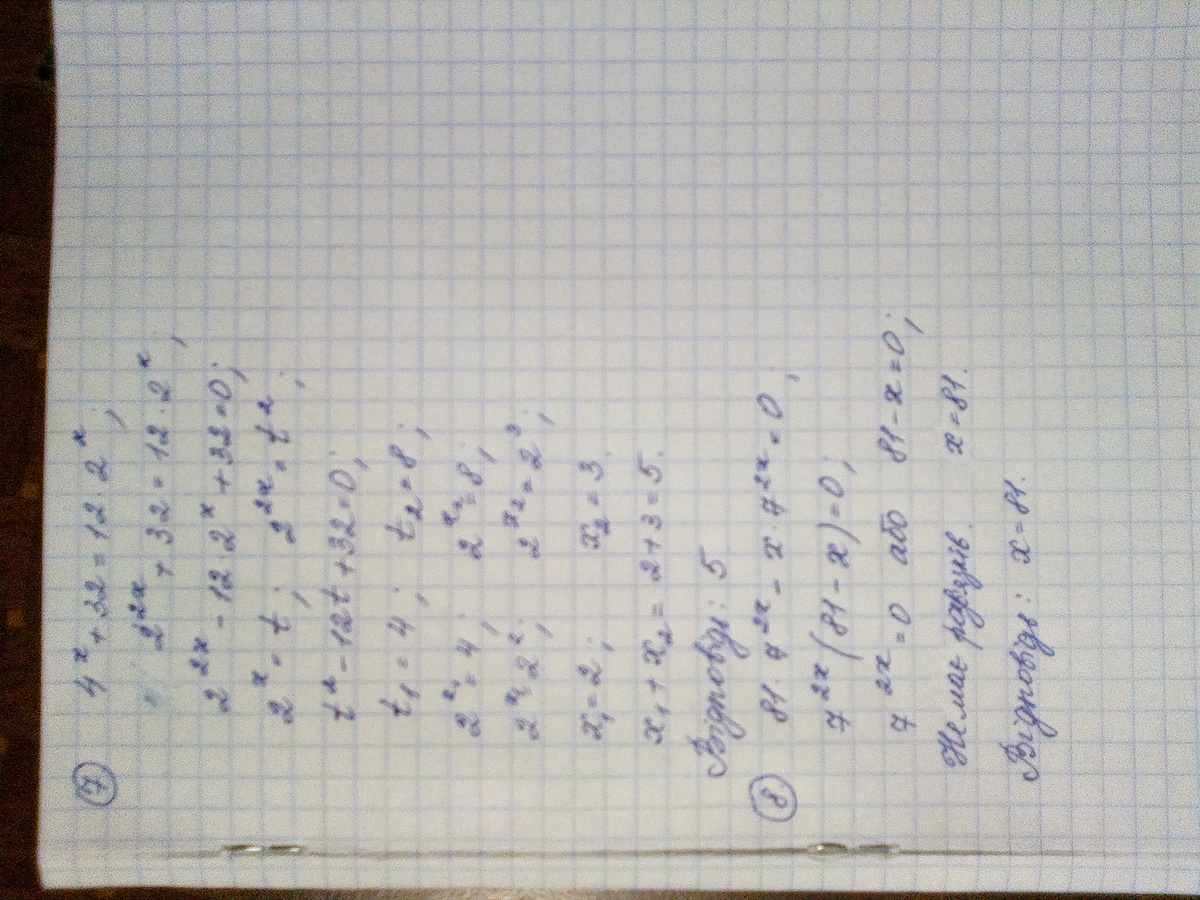 ⑦ 4ˣ + 32 = 12 · 2ˣ ;
2²ˣ + 32 = 12 · 2ˣ ;
2²ˣ - 12 · 2ˣ + 32 = 0 ;
2ˣ = t ; 2²ˣ = t² ;
t² - 12t + 32 = 0 ;
t₁ = 4 ; t₂ = 8 ;
2^x₁ = 4 ; 2^x₂ = 8 ;
2^x₁ = 2² ; 2^x₂ = 2³ ;
x₁ = 2 ; x₂ = 3.
x₁ + x₂ = 2 + 3 = 5.
Відповідь: 5
⑧ 81 · 7²ˣ - x · 7²ˣ = 0 ;
7²ˣ (81 - x) = 0 ;
7²ˣ = 0 або 81 - x = 0 ;
Немає розвʼязків. x = 81.
Відповідь: x = 81.